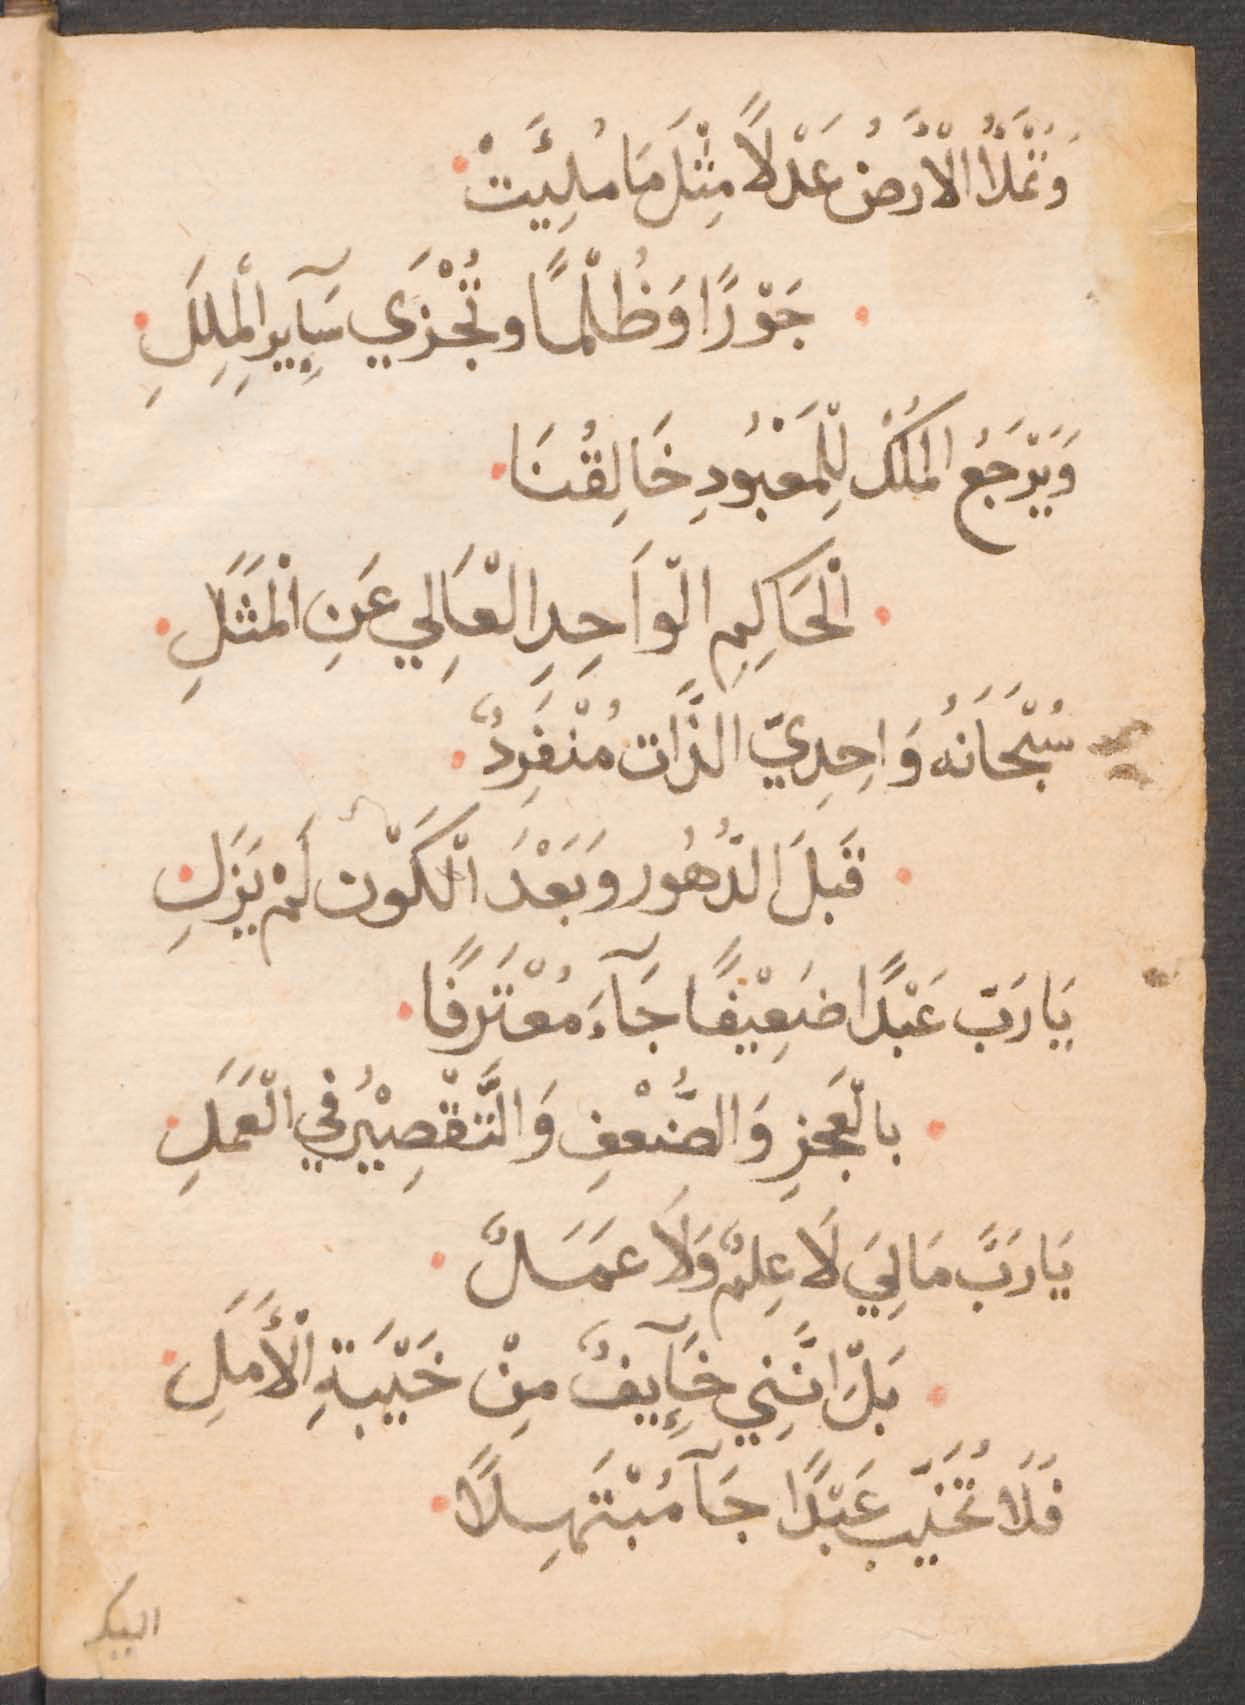 وَتُمْلَأُ الْأَرْضُ عَدْلًا مِثْلَ مَا مُلِيَتْ
جَوْرًا وَظُلْمًا وتُجْزَي سَآيِر الْمِلَلِ
وَيَرْجَعُ الْمُلْكُ لِلْمَعْبُودِ خَالِقُنَا
الْحَاكِمِ الْوَاحِدِ الْعَالِي عَنِ الْمَثَلِ
سُبْحَانَهُ وَاحِدِيّ الذَّات مُنْفَرِدٌ
قَبلَ الدُّهُور وَبَعْدَ الْكَوْن لَمْ يَزَلِ
يَا رَبّ عَبْدًا ضَعِيْفًا جَآءَ مُعْتَرِفًا
بالْعَجزِ وَالضُّعْفِ وَالتَّقْصِيْرُ في الْعَمَلِ
يَا رَبَّ مَا لِيَ لَا عِلمٌ وَلَا عَمَلٌ
بَلْ اِنَّنِي خَآيِفٌ مِنْ خَيْبَةِ الْأَمَلِ
فَلَا تُخَيّب عَبْدًا جَآ مُبْتَهِلًا
اليك